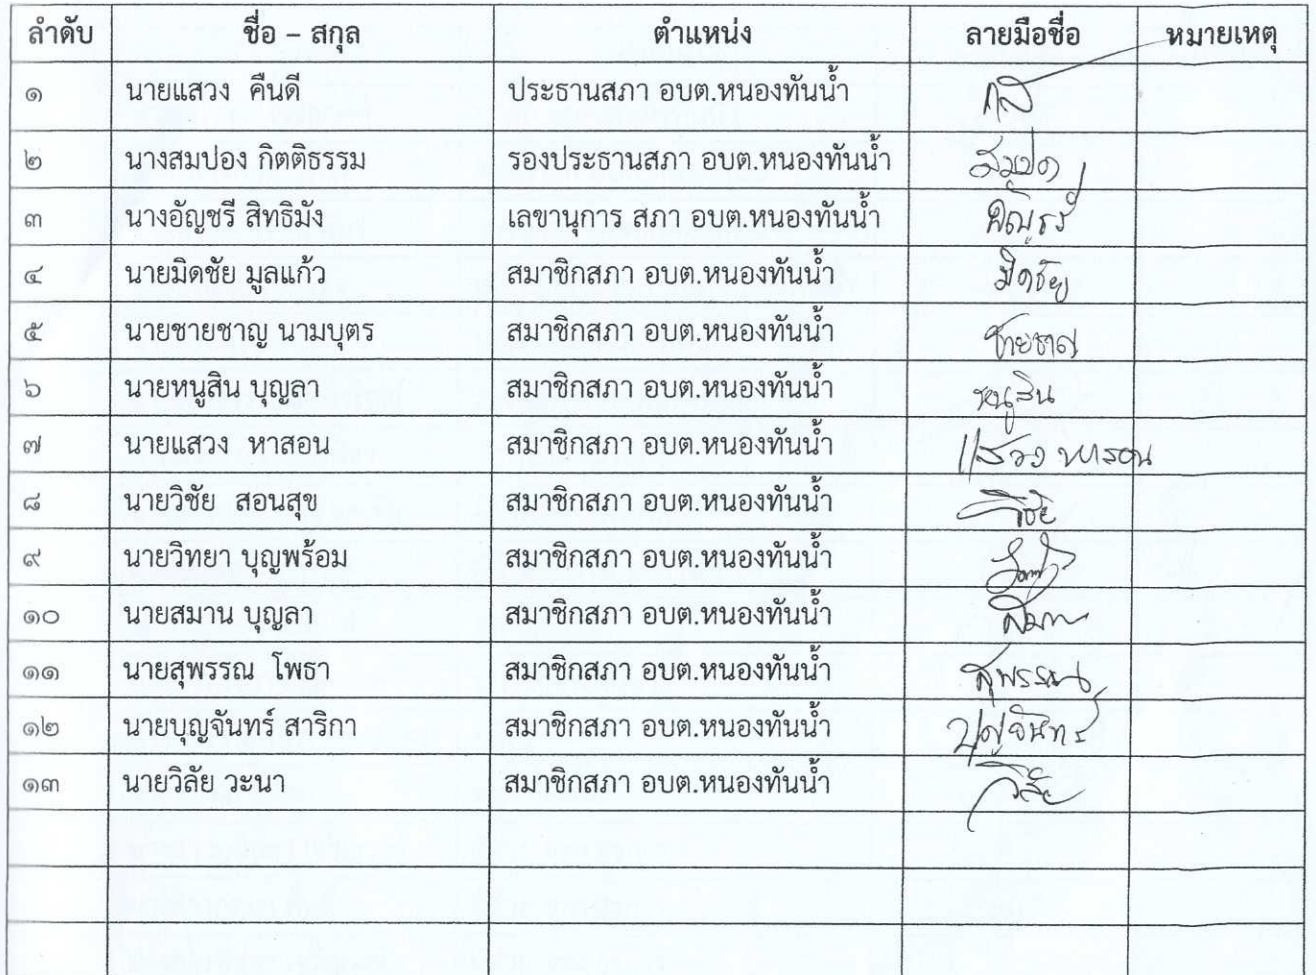 ลำดับ ชื่อ – สกุล ตำแหน่ง ลายมือชื่อ หมายเหตุ
๑ นายแสวง คืนดี ประธานสภา อบต.หนองทันน้ำ
๒ นางสมปอง กิตติธรรม รองประธานสภา อบต.หนองทันน้ำ
๓ นางอัญชรี สิทธิมัง เลขานุการ สภา อบต.หนองทันน้ำ
๔ นายมิดชัย มูลแก้ว สมาชิกสภา อบต.หนองทันน้ำ มิดชัย
๕ นายชายชาญ นามบุตร สมาชิกสภา อบต.หนองทันน้ำ ชายชาญ
๖ นายหนูสิน บุญลา สมาชิกสภา อบต.หนองทันน้ำ หนูสิน
๗ นายแสวง หาสอน สมาชิกสภา อบต.หนองทันน้ำ แสวง หาสอน
๘ นายวิชัย สอนสุข สมาชิกสภา อบต.หนองทันน้ำ วิชัย
๙ นายวิทยา บุญพร้อม สมาชิกสภา อบต.หนองทันน้ำ
๑๐ นายสมาน บุญลา สมาชิกสภา อบต.หนองทันน้ำ สมาน
๑๑ นายสุพรรณ โพธา สมาชิกสภา อบต.หนองทันน้ำ สุพรรณ
๑๒ นายบุญจันทร์ สาริกา สมาชิกสภา อบต.หนองทันน้ำ บุญจันทร์
๑๓ นายวิลัย วะนา สมาชิกสภา อบต.หนองทันน้ำ วิลัย